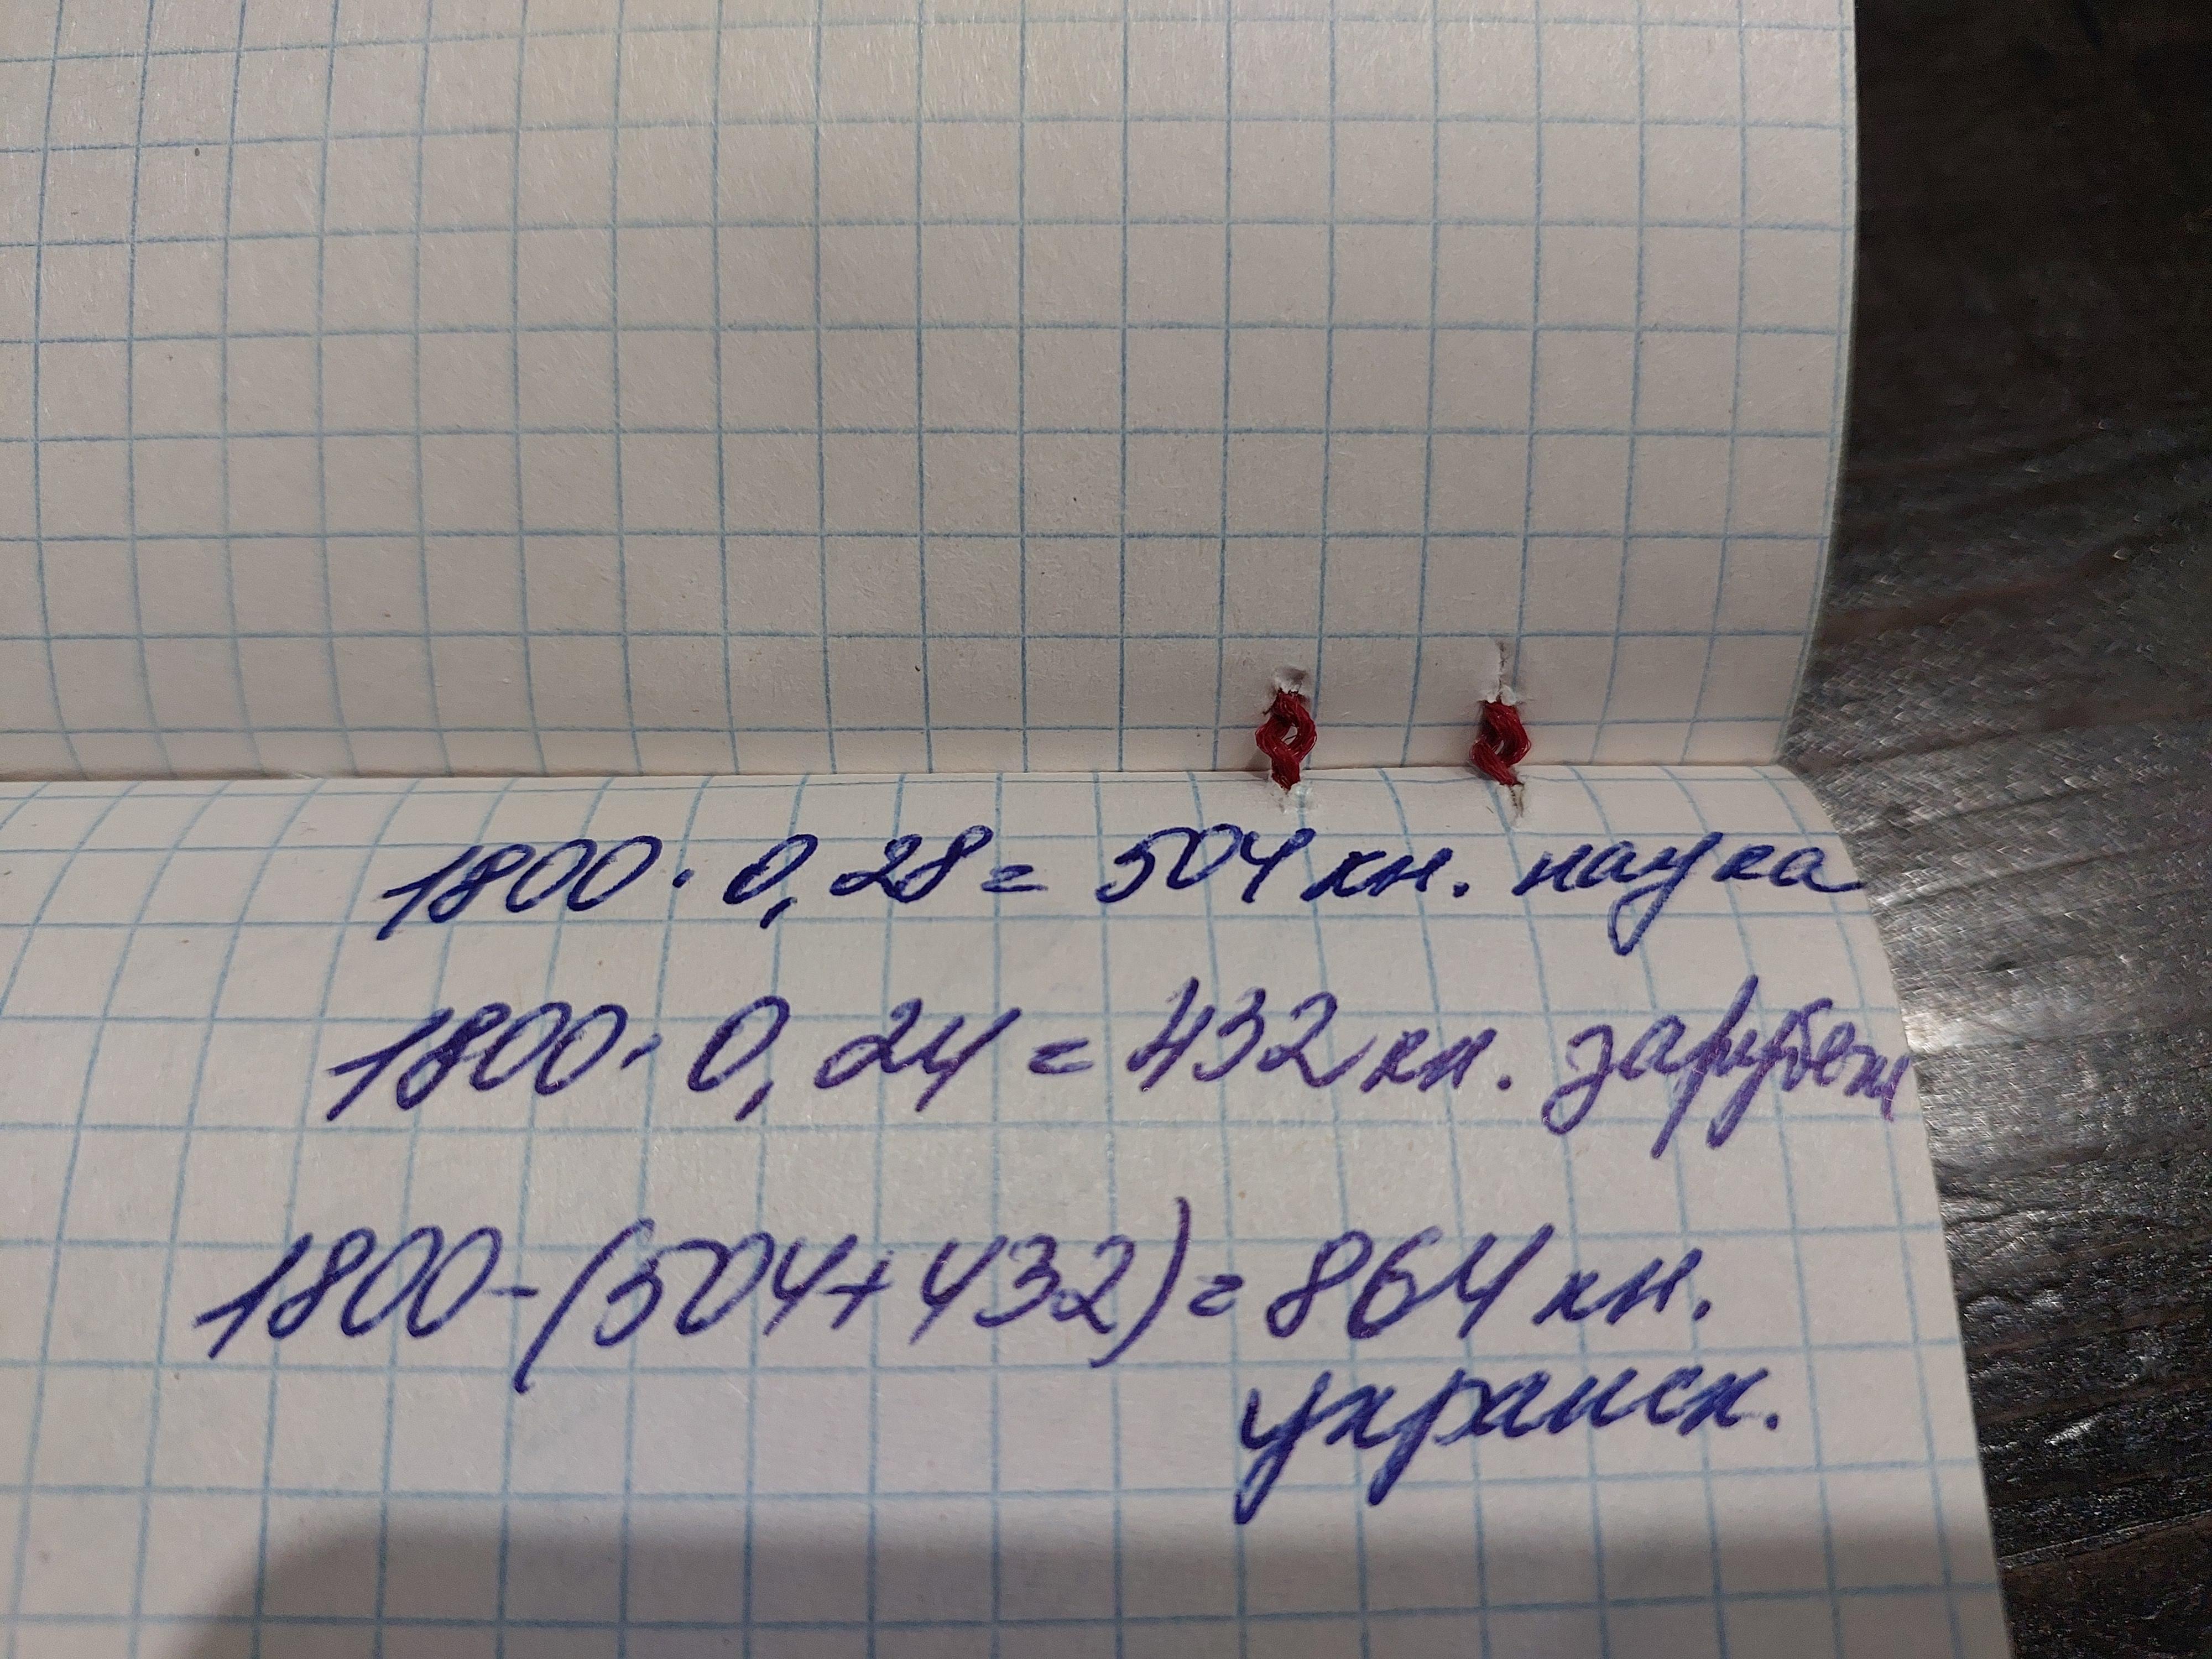 1800 · 0,28 = 504 кн. наука
1800 · 0,24 = 432 кн. зарубеж
1800 - (504 + 432) = 864 кн.
украиск.